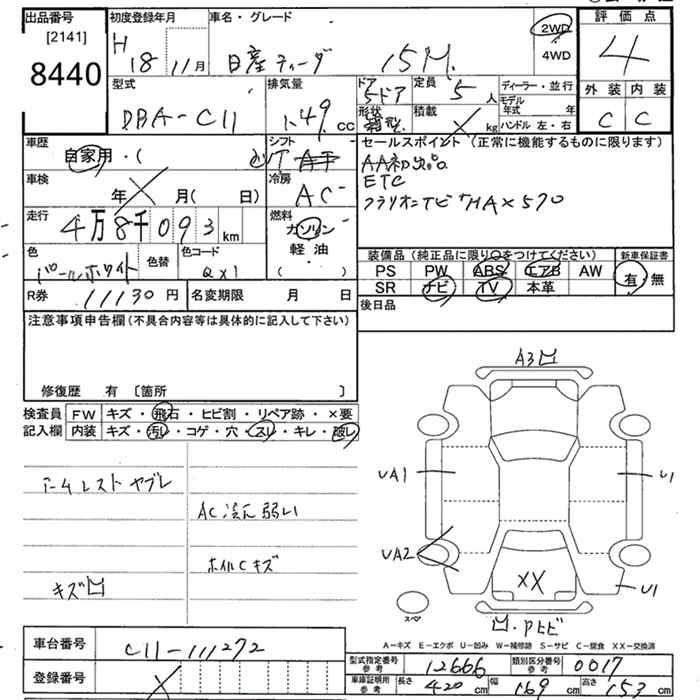 出品番号 初度登録年月 車名・グレード 2WD 4WD 評価点
[2141]
8440
H 18 11月 日産ティーダ 15M. 4
型式 排気量 ドア 5ドア 定員 5人 ディーラー・並行 外装 内装
DBA-C11 1.49 cc 形状 箱型 積載 kg モデル年式 年 ハンドル 左・右 C C
車歴 自家用・( ) シフト セールスポイント (正常に機能するものに限ります)
AA初出品
車検 年 月( 日) 冷房 AC
ETC
クラリオンTVナビ MAX570
走行 4万8千093km 燃料 ガソリン 軽油 ( )
色 パールホワイト 色替 色コード QX1
装備品 (純正品に限り○をつけてください) 新車保証書
PS PW ABS エアB AW 有・無
SR ナビ TV 本革
R券 11130円 名変期限 月 日
後日品
注意事項申告欄(不具合内容等は具体的に記入して下さい)
修復歴 有 [箇所 ]
検査員 FW キズ・飛石・ヒビ割・リペア跡・×要
記入欄 内装 キズ・汚レ・コゲ・穴・スレ・キレ・破レ
アームレスト ヤブレ
AC冷え弱い
ホイルCキズ
キズ凹
A3凹
UA1 U1
UA2
XX U1
スペア
凹・Pヒビ
A-キズ E-エクボ U-凹み W-補修跡 S-サビ C-腐食 XX-交換済
車台番号 C11-111272
登録番号
型式指定番号 参考 12666 類別区分番号 参考 0017
車庫証明用 参考 長さ 420cm 幅 169cm 高さ 153cm